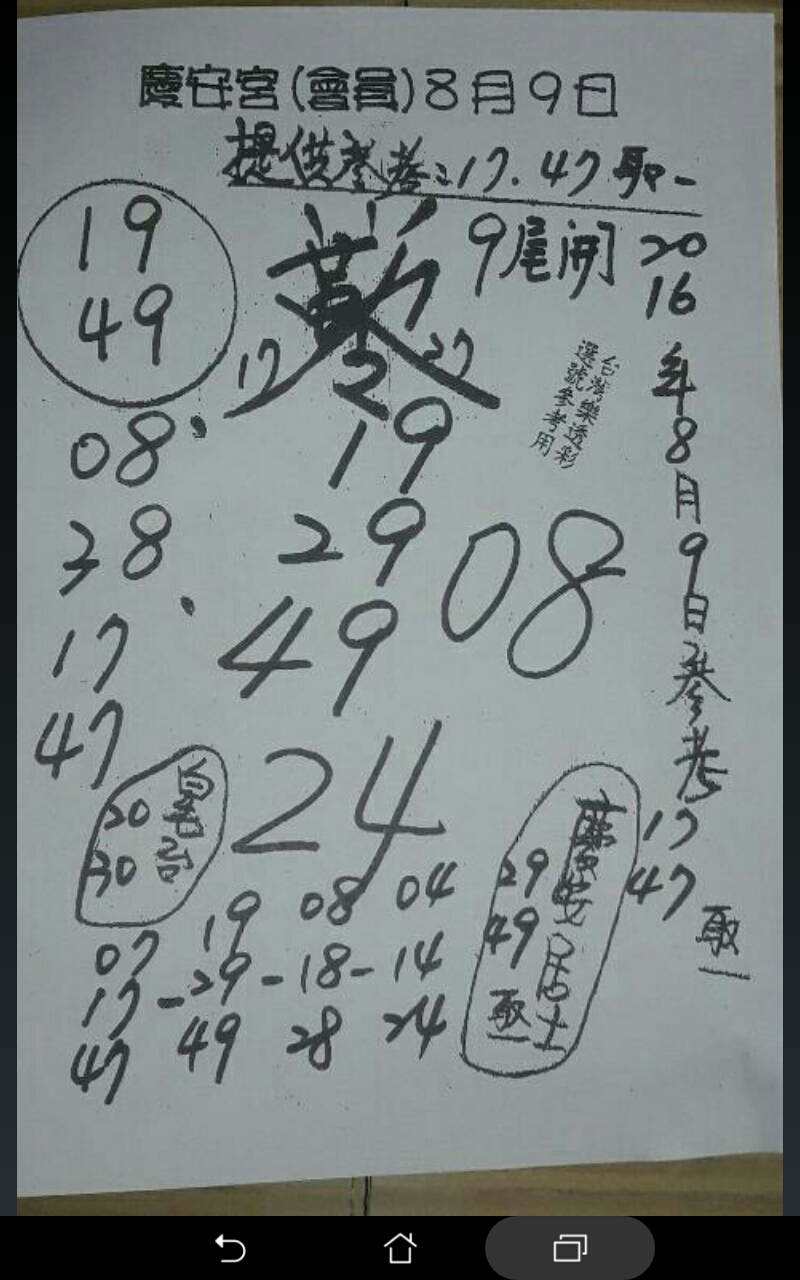 慶安宮(會員)8月9日
提供參考:17.47取一
19
49
9尾開
17
27
2
19
29
49
08
38
17
47
08
24
台灣樂透彩
選號參考用
2016年8月9日參考
17
47
取一
20
30
慶安居士
29
49
取一
07 19 08 04
17-29-18-14
47 49 28 24